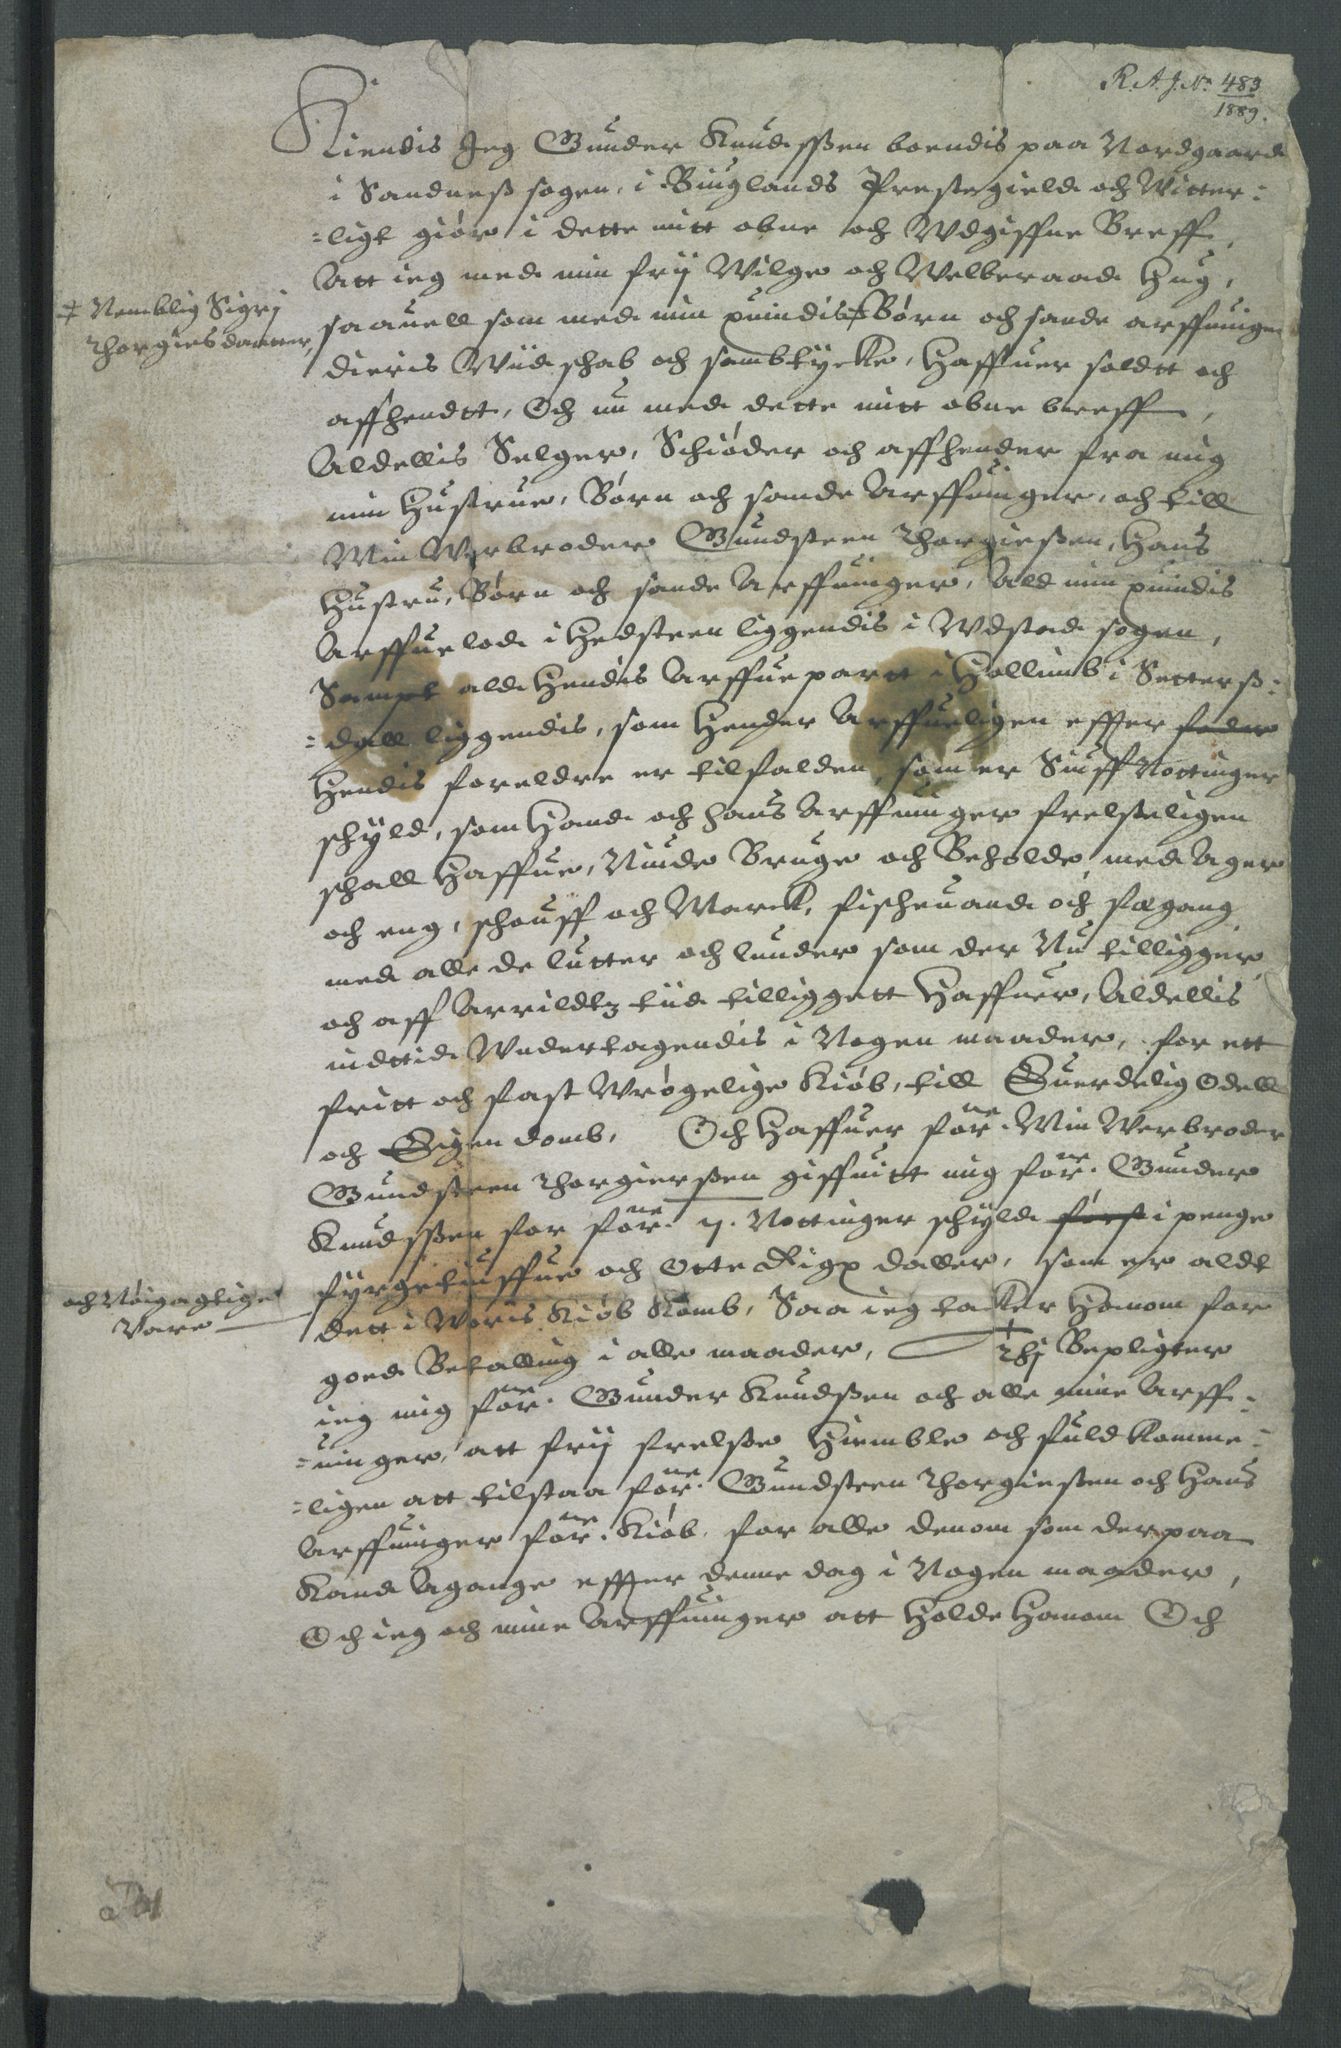 R. A. J. No. 483
1889.
Kiendis Jeg Gunder Knudssen boendis paa Nordgaard
i Sandness sogen, i Biuglands Prestegield och Witter:
:ligt giör i dette mitt obne och Wdgiffne Breff,
Att ieg med min frij Wilge och Welberaad Hug,
‡ Nemblig Sigrj
Thorgiesdaatter,
saauell som med min quindis ‡ Börn och sande arffuinger
dieris Wiidschab och sambtycke, Haffuer soldtt och
affhendtt, Och nu med dette mitt obne breff,
Aldellis Selger, Schiöder och affhender fra mig
min Hustrue, Börn och sande Arffuinger, och till
Min Werbroder Gundsteen Thorgiessen, Hans
Hustru, Börn och sande Arffuinger, Ald min quindis
Arffuelod i Hedsteen liggendis i Wdstad sogen,
Sampt ald Hendis Arffuepartt i Hollimb i Setterss:
:dall liggendis, som Hender Arffueligen effter feder
Hendis foreldre er tilfalden, som er Siuff Nottinger
schyld, som Hand och hans Arffuinger frelseligen
schall Haffue, Niude Bruge och Beholde, med Ager
och eng, schouff och Marck, fischeuand och fægang
med alle de lutter och lunder som der Nu tilligger
och aff Arrildtz tiid tilliggett Haffuer, Aldellis
indttid Wndertagendis i Nogen maader, for ett
fritt och fast Wrögelige Kiöb, till Euerdelig Odell
och Eigendomb, Och Haffuer forne. Min Werbroder
Gundsteen Thorgierssen giffuitt mig forne. Gunder
Knudssen for forne. 7. Nottinger schyld först i penge
fyrgetiuffue och Otte Rigx daller, som er aldt
och Nöigagtige
Vare
dett i Woris Kiöb Komb, Saa ieg tacker Hanom for
goed Betalling i alle maader, Thj Bepligter
ieg mig forne. Gunder Knudssen och alle mine Arff:
:uinger, att frij frelsse Hiemble och fuldkomme:
:ligen att tilstaa forne. Gundsteen Thorgiessen och Hans
Arffuinger forne. Kiöb, for alle denom som der paa
Kand Agange effter denne dag i Nogen maader,
Och ieg och mine Arffuinger att Holde Hanom Och